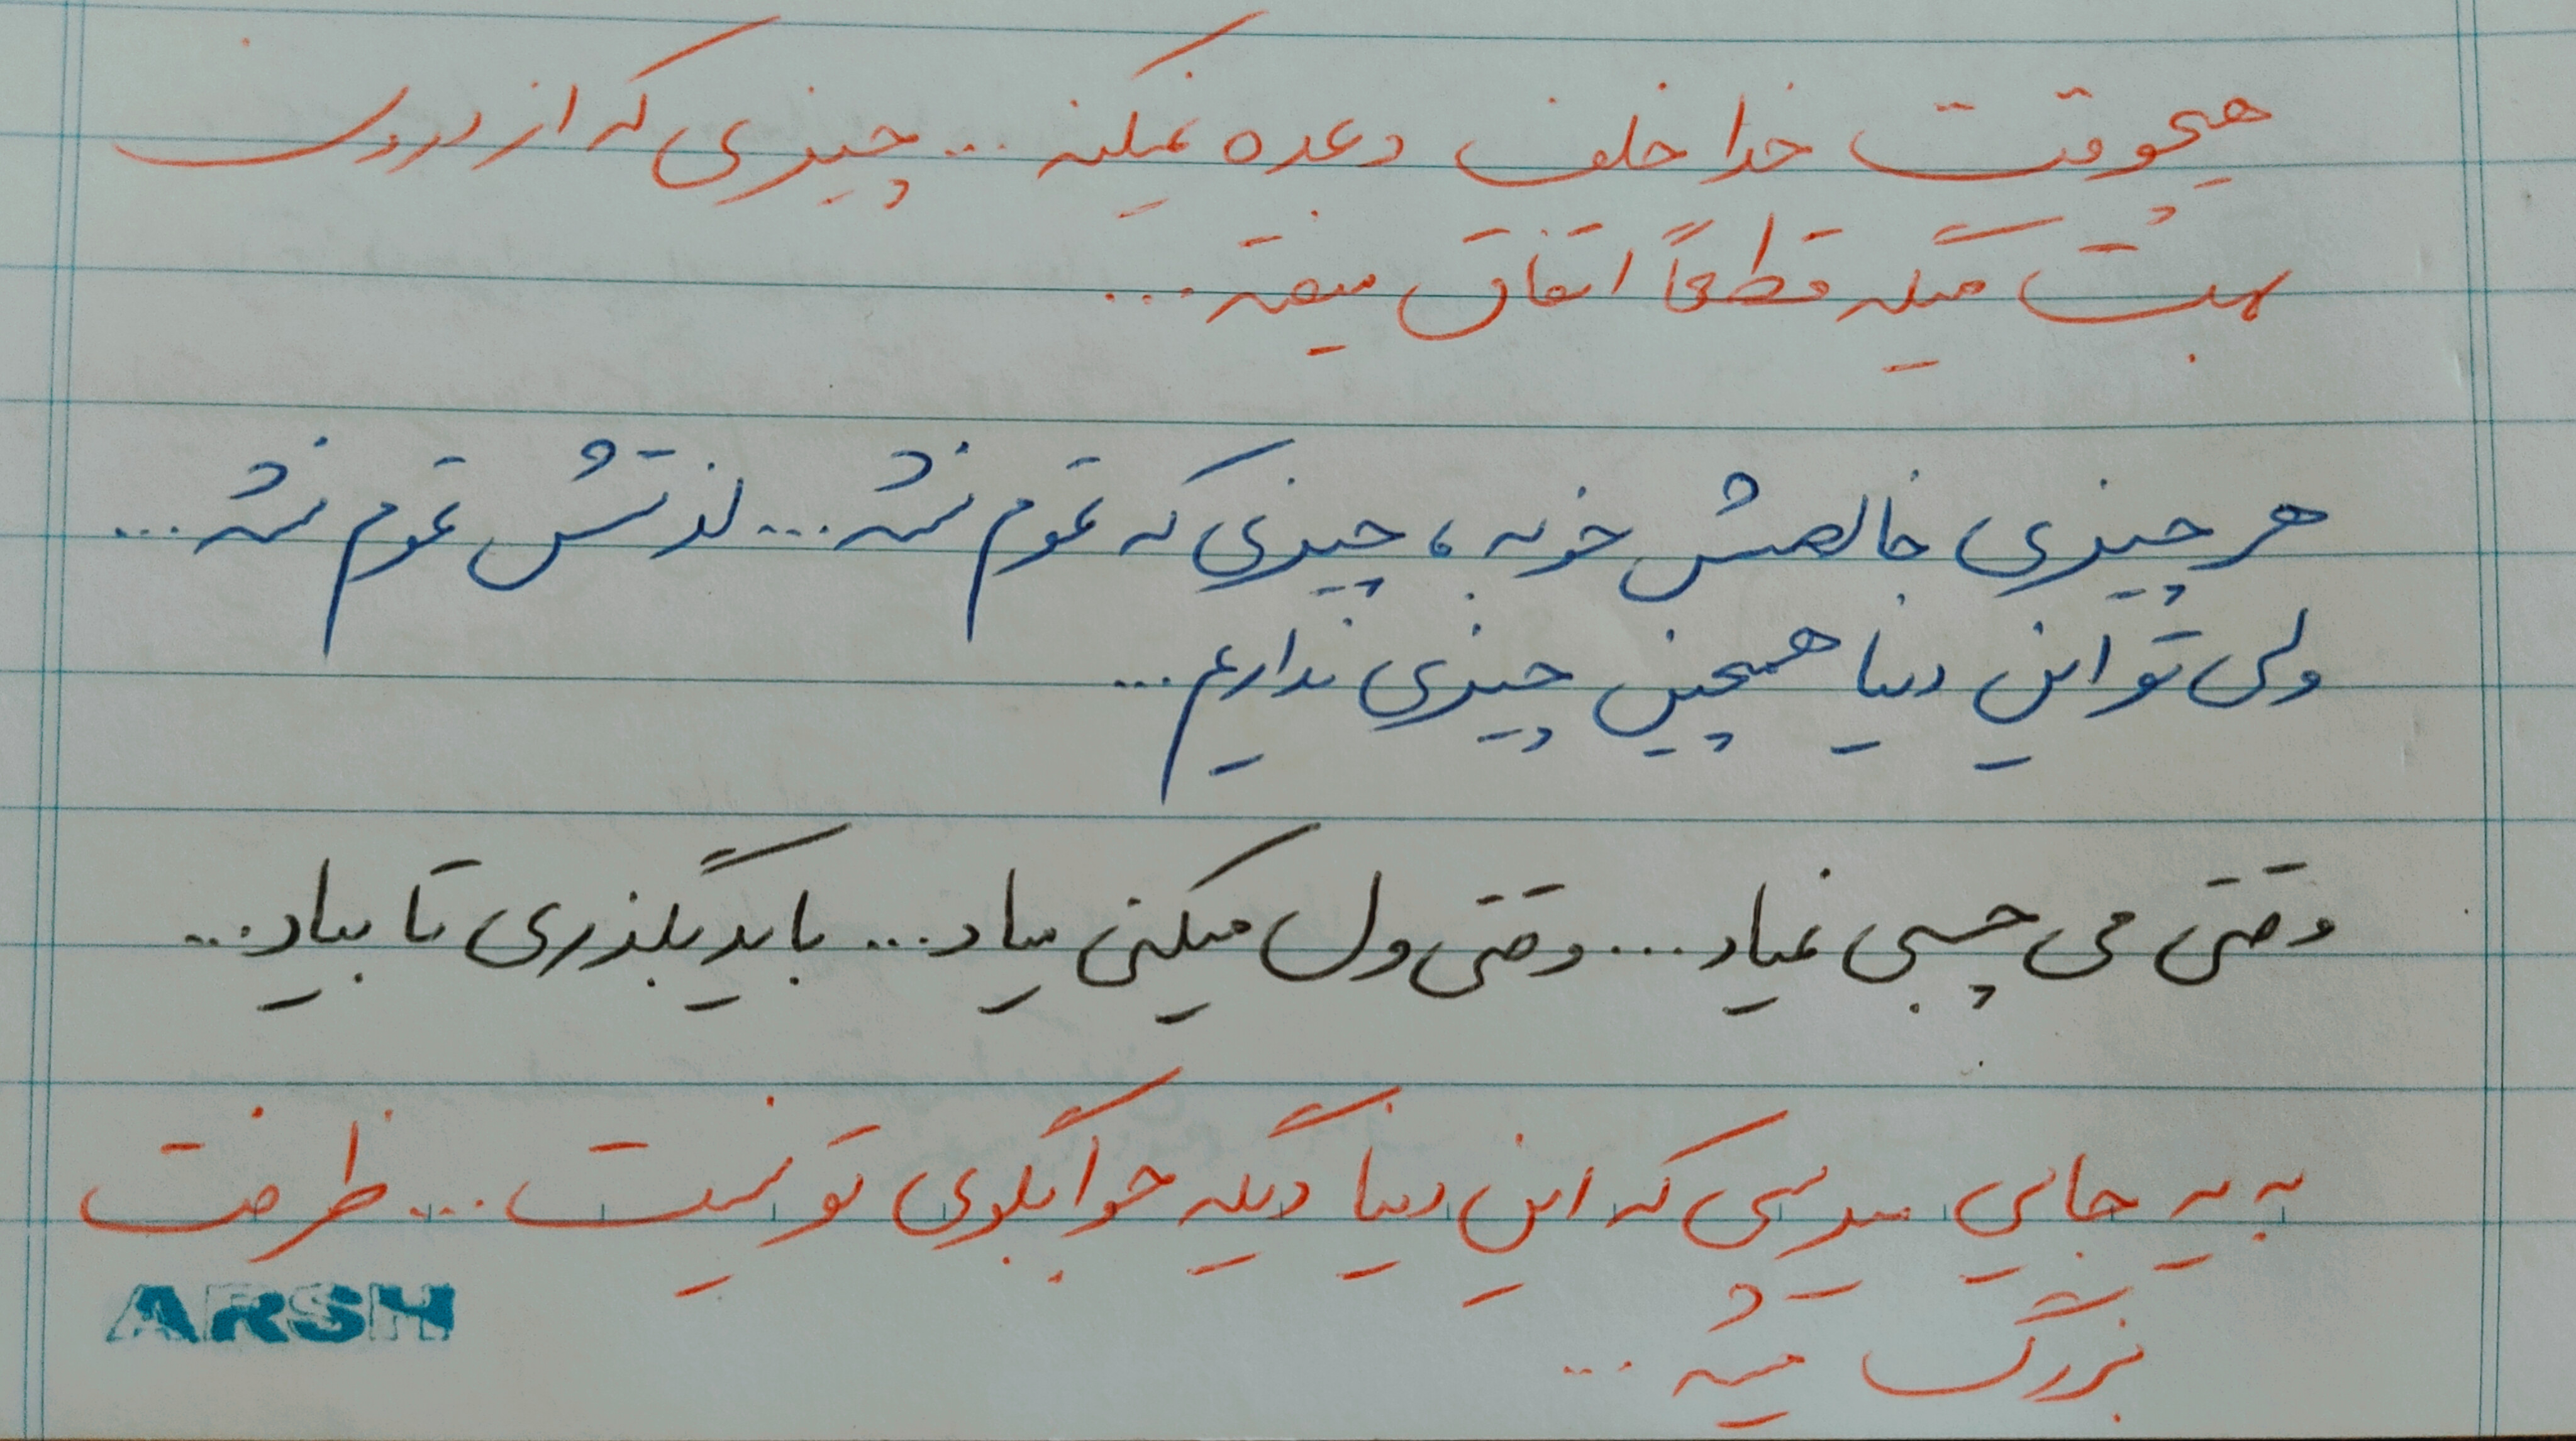 هیچوقت خدا خلف وعده نمیکنه ... چیزی که از درون
بهت میگه قطعاً اتفاق میفته ...
هر چیزی خالصش خوبه ، چیزی که تموم نشه ... لذتش تموم نشه ...
ولی تو این دنیا همچین چیزی نداریم ...
وقتی می چسبی نمیاد .... وقتی ول میکنی میاد ... باید بگذری تا بیاد ...
به یه جایی میرسی که این دنیا دیگه جوابگوی تو نیست ... ظرفت
بزرگ میشه ...
ARSH